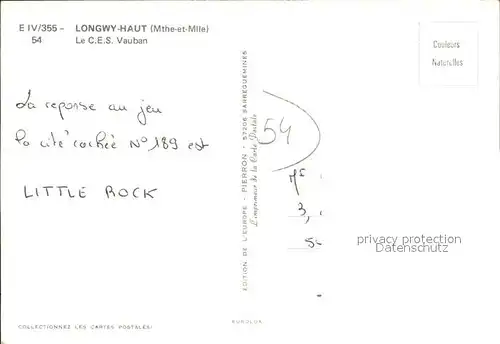 E IV/355 - LONGWY-HAUT (Mthe-et-Mlle)
54 Le C.E.S. Vauban
Couleurs
Naturelles
La reponse au jeu
la cité cachée N° 189 est
LITTLE ROCK
54
EDITION DE L'EUROPE - PIERRON - 57206 SARREGUEMINES
L'imprimeur de la Carte Postale
3,
privacy protection
www.ansichtskarten-center.de
COLLECTIONNEZ LES CARTES POSTALES!